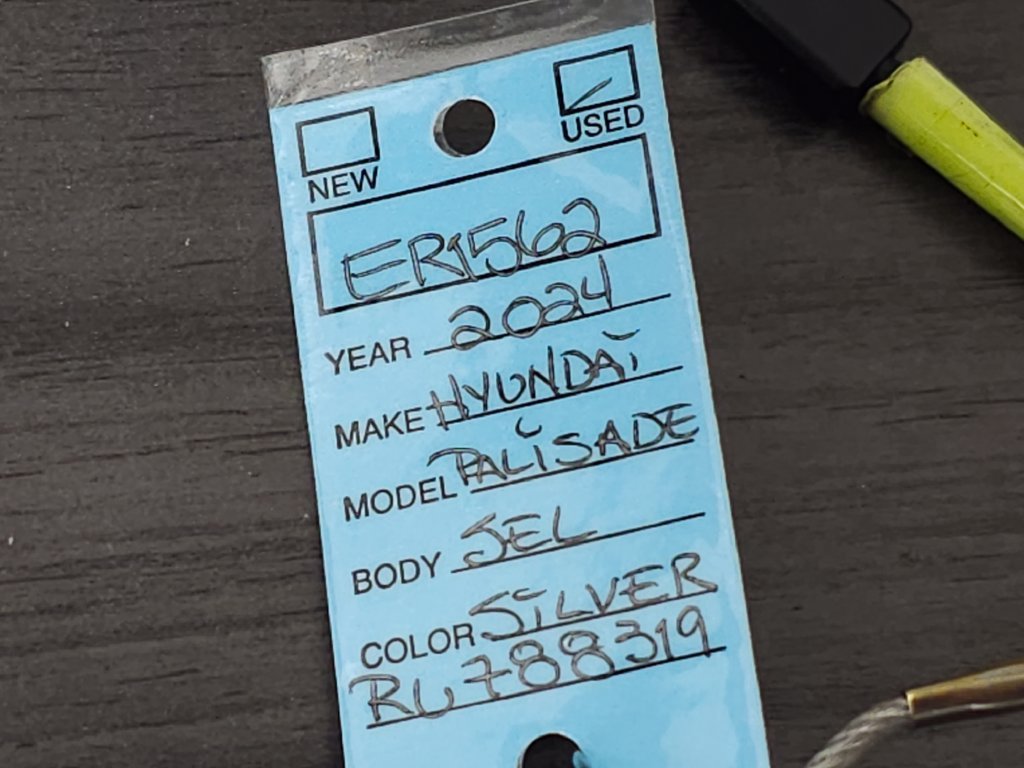 NEW USED
ER1562
YEAR 2024
MAKE HYUNDAi
MODEL PALiSADE
BODY SEL
COLOR SiLVER
RU788319